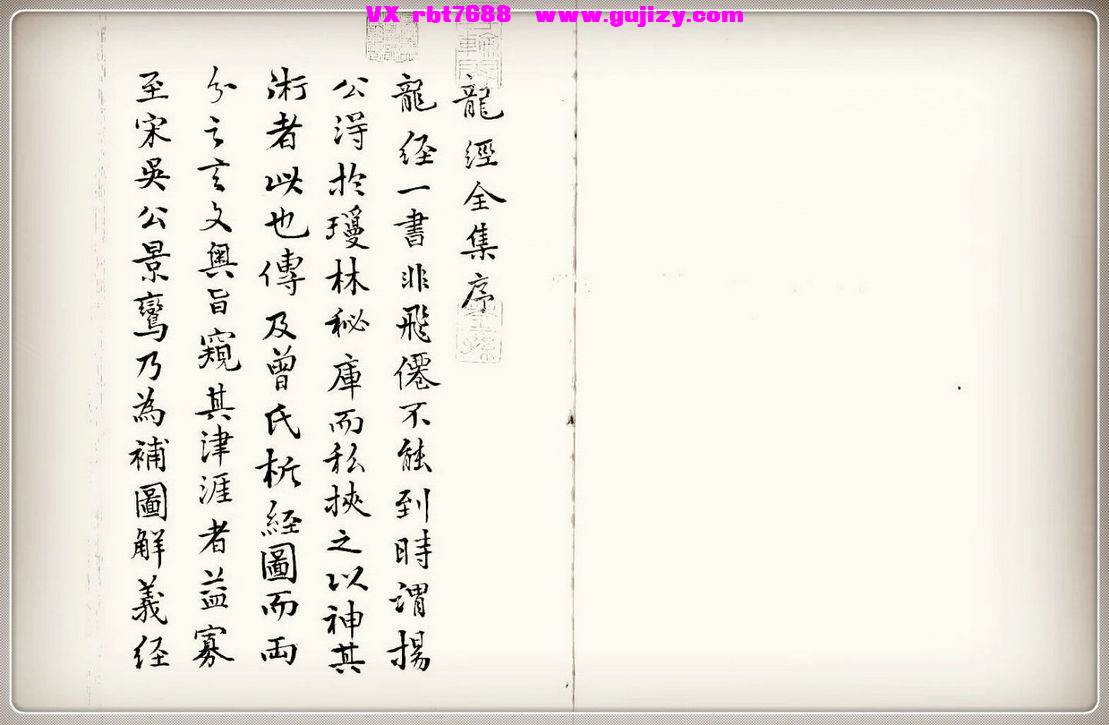 VX rbt7688 www.gujizy.com
龍經全集序
龍経一書非飛僊不能到時謂揚
公淂於瓊林秘庫而私挾之以神其
術者此也傳及曾氏析経圖而兩
分之言文奧旨窺其津涯者益寡
至宋吳公景鸞乃為補圖解義経